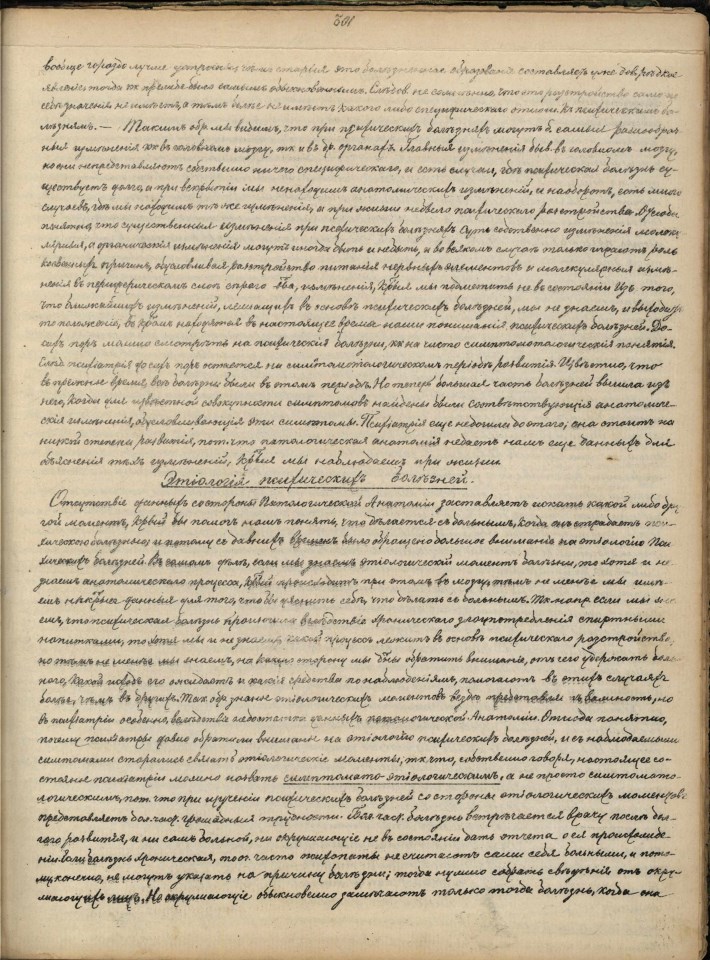 301
вообще гораздо лучше устроены, чѣмъ старыя это болѣзненное образованіе составляетъ уже довъ рѣдкое
явленіе тогда кк прежде было весьма обыкновеннымъ. Слѣдов. не сомнѣнно, что это разстройство само по
себѣ значенія не имѣетъ, а тѣмъ болѣе не имѣетъ какого либо специфическаго отнош. къ психическимъ бо-
лѣзнямъ. — Такимъ обр. мы видимъ, что при психическихъ болѣзняхъ могутъ б. самыя разнообраз-
ныя измѣненія кк въ головномъ мозгу, тк и въ др. органахъ. Главныя измѣненія быв. въ головномъ мозгу,
но они непредставляютъ собственно ничего специфическаго, и есть случаи, гдѣ психическая болѣзнь су-
ществуетъ долго, и при вскрытіи мы ненаходимъ анатомическихъ измѣненій, и наоборотъ, есть много
случаевъ, гдѣ мы находимъ тѣ же измѣненія, а при жизни небыло психическаго разстройства.
понятно, что существенныя измѣненія при психическихъ болѣзняхъ суть собственно измѣненія молеку-
лярныя, а органическія измѣненія могутъ иногда быть и не быть, и во всякомъ случаѣ только играютъ роль
косвенныхъ причинъ, обусловливая разстройство питанія нервныхъ элементовъ и молекулярныя измѣ-
ненія въ периферическомъ слоѣ сѣраго в-ва, измѣненія, кѣыя мы подмѣтить не въ состояніи. Изъ того,
что ближайшихъ измѣненій, лежащихъ въ основѣ психическихъ болѣзней, мы не знаемъ, и выходитъ
то положеніе, въ кѣомъ находятся въ настоящее время наши пониманія психическихъ болѣзней. До-
сихъ поръ можно смотрѣть на психическія болѣзни, кк на чисто симптоматологическія понятія.
Слѣд. психіатрія до сихъ поръ остается на симптоматологическомъ періодѣ развитія. Извѣстно, что
въ прежнее время, всѣ болѣзни были въ этомъ періодѣ. Но теперь большая часть болѣзней вышла изъ
него, когда для извѣстной совокупности симптомовъ найдены были соотвѣтствующія анатомиче-
скія измѣненія, обусловливающія эти симптомы. Психіатрія еще недошла до этого; она стоитъ на
низкой степени развитія, пот. что патологическая анатомія недаетъ намъ еще данныхъ для
объясненія тѣхъ измѣненій, кѣыя мы наблюдаемъ при жизни
Этіологія психическихъ болѣзней.
Отсутствіе данныхъ со стороны Патологической Анатоміи заставляетъ искать какой либо дру-
гой моментъ, кѣый бы помогъ намъ понять, что дѣлается съ больнымъ, когда онъ страдаетъ пси-
хическою болѣзнью, и потому съ давнихъ временъ было обращено большое вниманіе на этіологію Пси-
хическихъ болѣзней. Въ самомъ дѣлѣ, если мы знаемъ этіологическій моментъ болѣзни, то хотя и не
знаемъ анатомическаго процесса, кѣый происходитъ при этомъ въ мозгу, тѣмъ не менѣе мы имѣ-
емъ нѣкѣыя данныя для того, что бы уяснить себѣ, что дѣлать съ больнымъ. Тк напр. если мы зна-
емъ, что психическая болѣзнь произошла вслѣдствіе хроническаго злоупотребленія спиртными
напитками, то хотя мы и не знаемъ, какой процессъ лежитъ въ основѣ психическаго разстройства,
но тѣмъ не менѣе мы знаемъ, на какую сторону мы д-ны обратить вниманіе, отъ чего удержать боль-
наго, какой исходъ его ожидаетъ и какія средства по наблюденіямъ, помогаютъ въ этихъ случаяхъ
болѣе, чѣмъ въ другихъ. Так. обр. знаніе этіологическихъ моментовъ вездѣ представляетъ важность, но
въ психіатріи особенно, вслѣдствіе недостатка данныхъ патологической Анатоміи. Отсюда понятно,
почему психіатры давно обратили вниманіе на этіологію психическихъ болѣзней, и съ наблюдаемыми
симптомами старались связать этіологическіе моменты, тк что, собственно говоря, настоящее со-
стояніе психіатріи можно назвать симптомато-этіологическимъ, а не просто симптомато-
логическимъ, пот. что при изученіи психическихъ болѣзней со стороны этіологическихъ моментовъ
представляетъ больш. громадныя трудности. болѣзнь встрѣчается врачу послѣ дол-
гаго развитія, и ни самъ больной, ни окружающіе не въ состояніи дать отчета о ея происхожде-
ніи. болѣзнь хроническая, то оч. часто психопаты не считаютъ сами себя больными, и пото-
му конечно, не могутъ указать на причину болѣзни; тогда нужно собрать свѣдѣнія отъ окру-
жающихъ лицъ. Но окружающіе обыкновенно замѣчаютъ только тогда болѣзнь, когда она